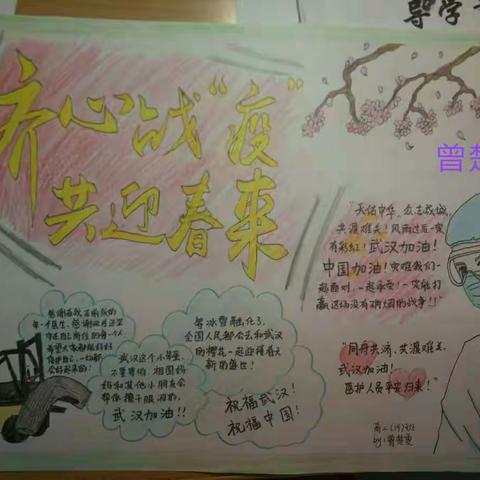 导学
齐心战“疫”
共迎春来
曾楚
“天佑中华，众志成城，
共渡难关！风雨过后一定
有彩虹！武汉加油！
中国加油！灾难我们一
起面对，一起承受！一定能打
赢这场没有硝烟的战争！！”
每一个医生，感谢
希望大家都能好好
保护自己，一切都
会好起来的！
武汉这个小笨蛋，
不要害怕，祖国妈
妈和其他小朋友会
帮你擦干眼泪的，
武汉加油！！
等冰雪融化了，
全国人民都会去和武汉
的樱花一起迎接春天
新的盛世！
祝福武汉！
祝福中国！
“同舟共济，共渡难关，
武汉加油！
医护人员平安归来！”
高二（19）班
by：曾楚